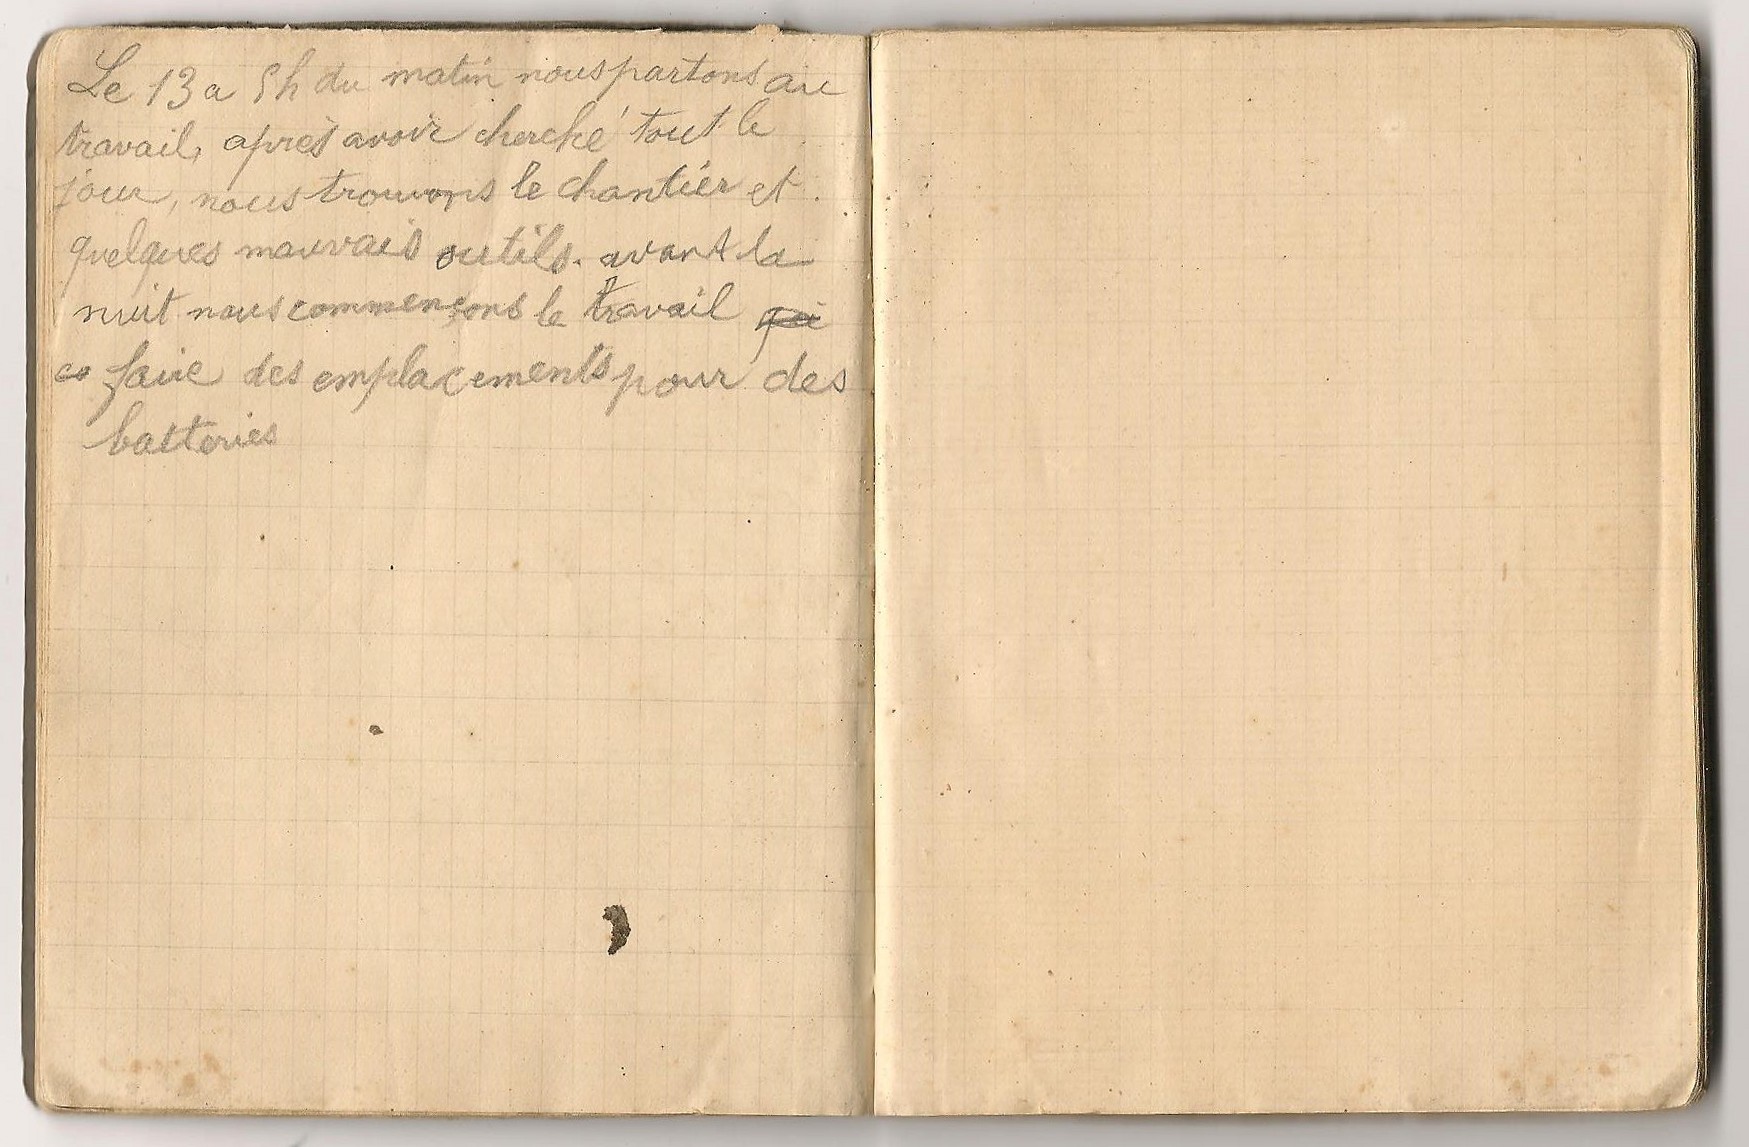 Le 13 a 5h du matin nous partons au
travail, après avoir cherché tout le
jour, nous trouvons le chantier et
quelques mauvais outils. avant la
nuit nous commençons le travail
faire des emplacements pour des
batteries